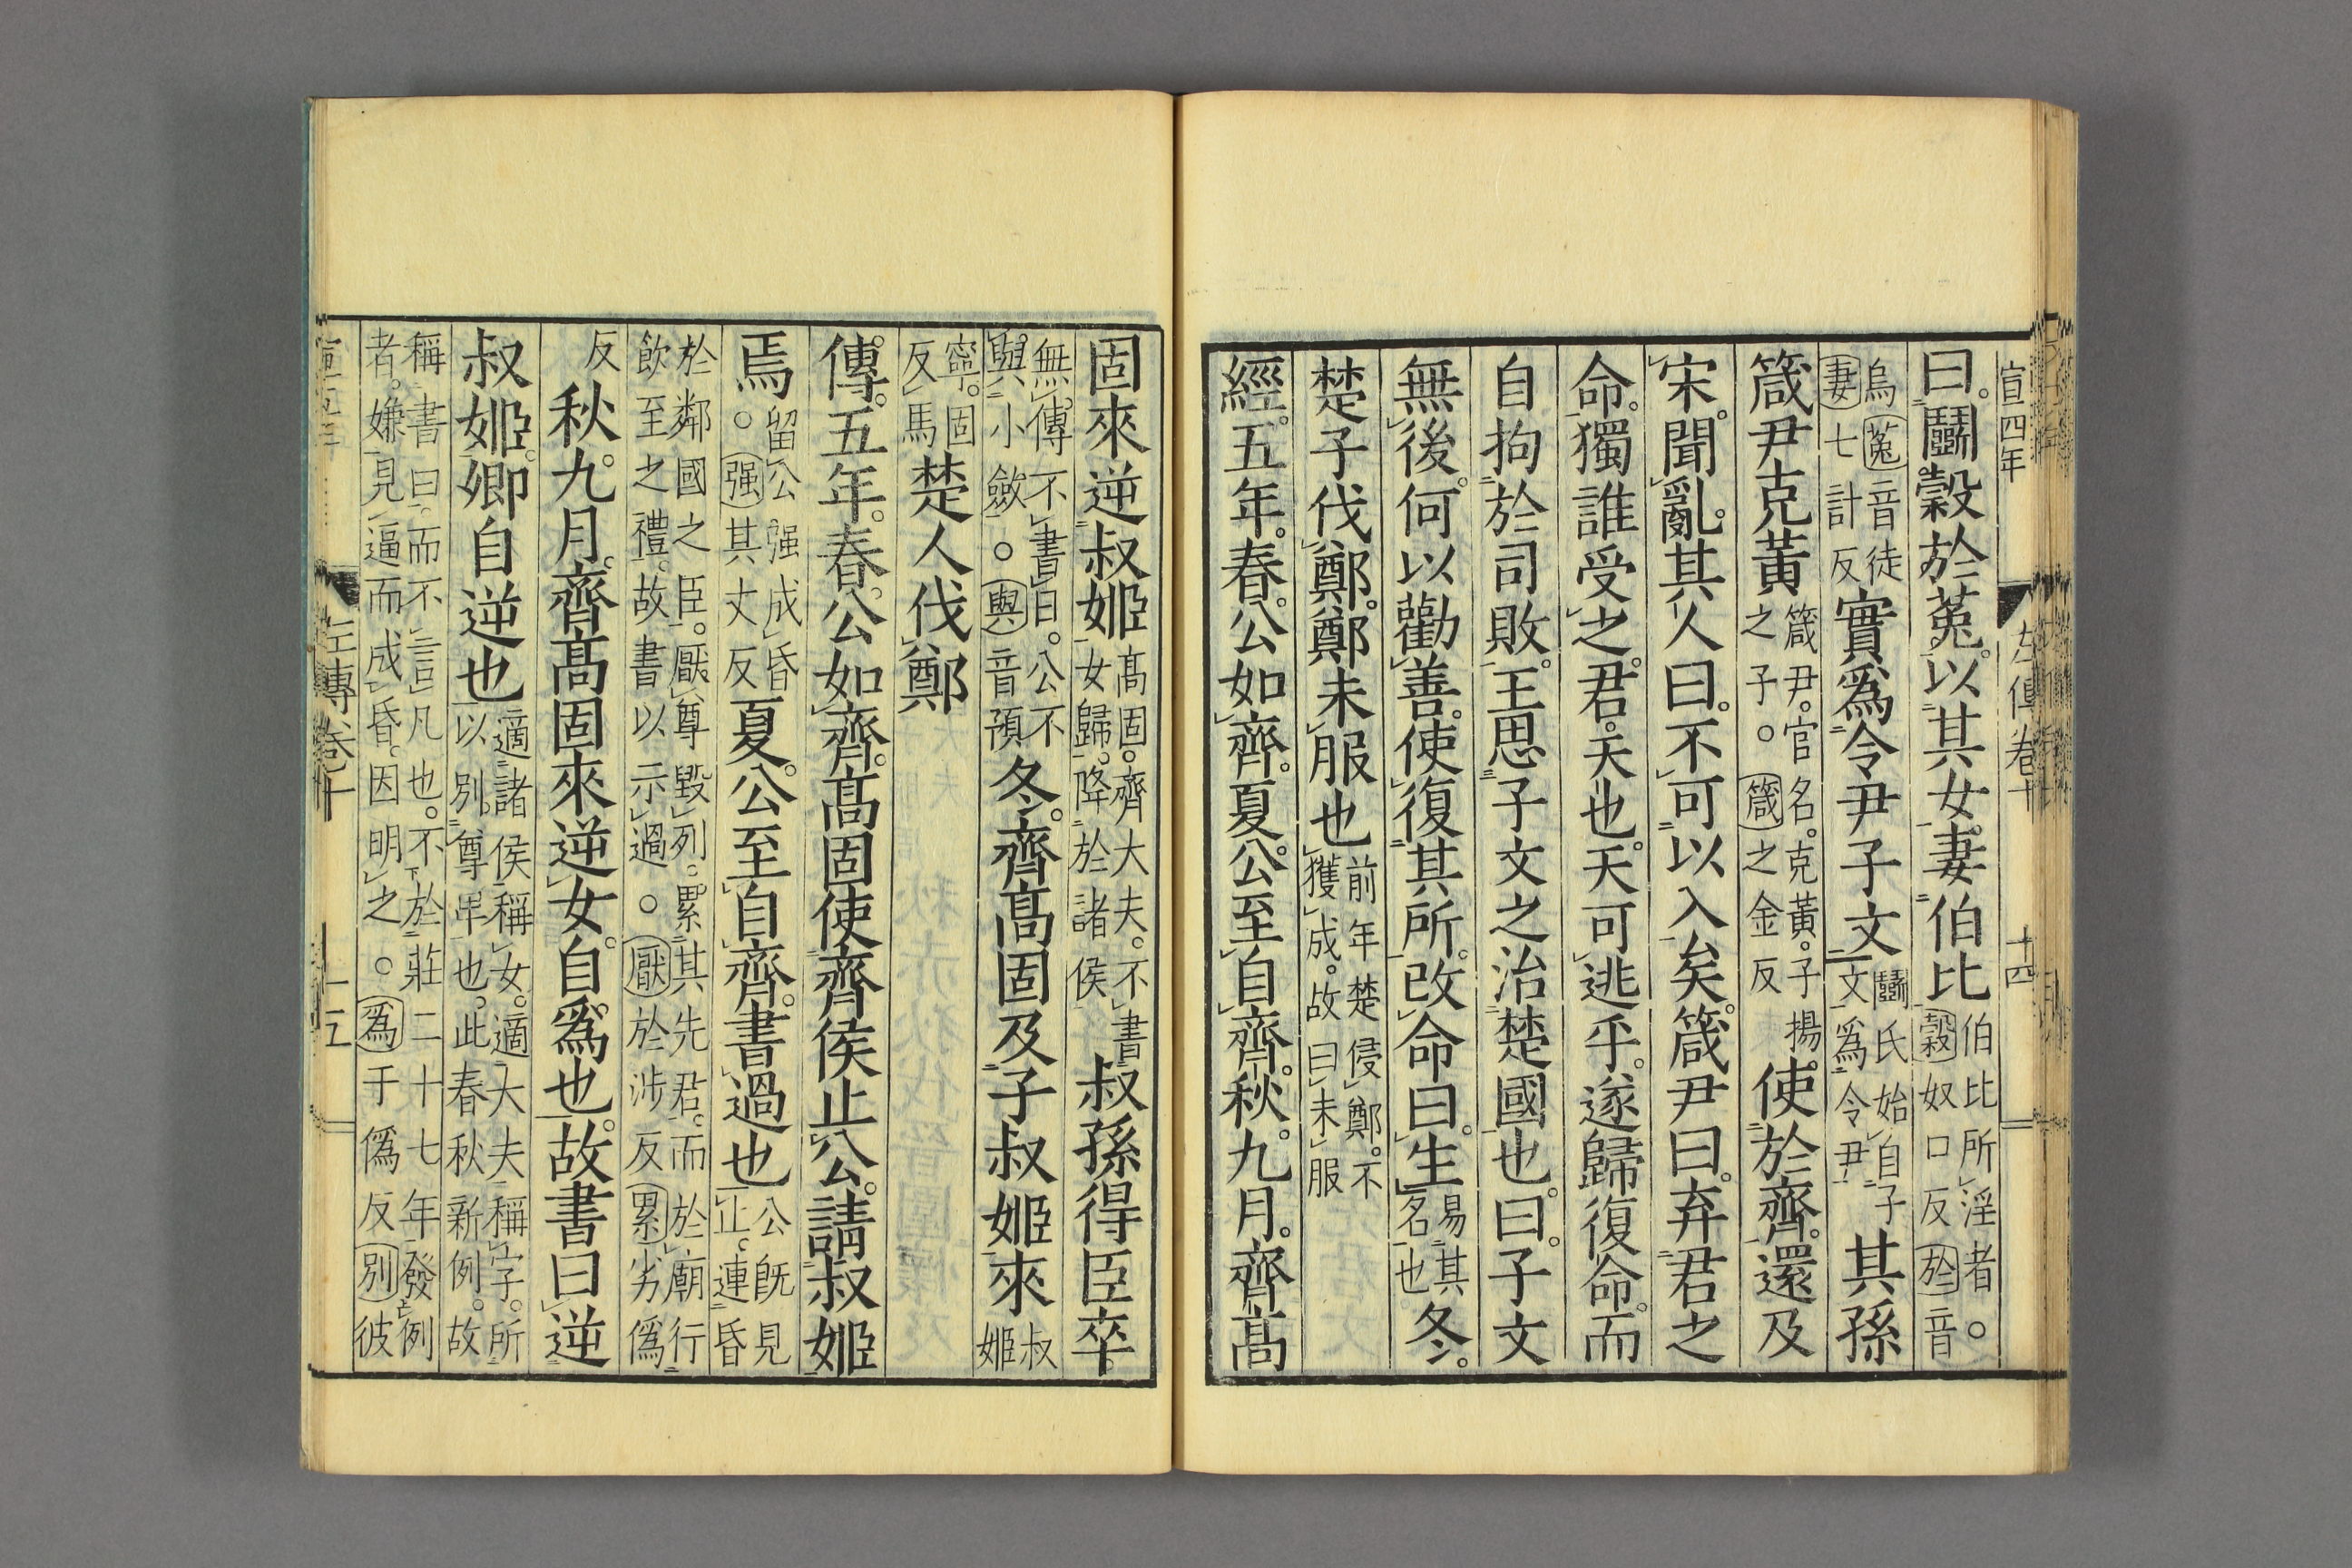 宣四年 左傳卷十 十四
曰。鬭穀於菟。以其女。妻伯比伯比所淫者。○穀奴口反於音
烏菟音徒妻七計反實爲令尹子文鬭氏始自子文爲令尹其孫
箴尹克黃箴尹。官名。克黃。子揚之子。○箴之金反使於齊。還及
宋。聞亂。其人曰。不可以入矣。箴尹曰。弃君之
命。獨誰受之。君。天也。天可逃乎。遂歸復命。而
自拘於司敗。王思子文之治楚國也。曰。子文
無後。何以勸善。使復其所。改命曰。生易其名也。冬。
楚子伐鄭。鄭未服也前年楚侵鄭。不獲成。故曰未服
經。五年。春。公如齊。夏。公至自齊。秋。九月。齊髙
固來逆叔姬髙固。齊大夫。不書女歸。降於諸侯叔孫得臣卒。
無傳不書日。公不與小斂。○與音預冬。齊髙固及子叔姬來叔姬
寧。固反馬楚人伐鄭
傳。五年。春。公如齊。髙固使齊侯止公。請叔姬
焉留公强成昏○强其丈反夏。公至自齊。書過也公既見止。連昏
於鄰國之臣。厭尊毀列。累其先君。而於廟行飮至之禮。故書以示過○厭於涉反累劣僞
反秋。九月。齊髙固來逆女。自爲也。故書曰逆
叔姬。卿自逆也適諸侯稱女。適大夫稱字。所以別尊卑也。此春秋新例。故
稱書曰。而不言凡也。不於莊二十七年發例者。嫌見逼而成昏。因明之。○爲于僞反別彼
左傳卷十